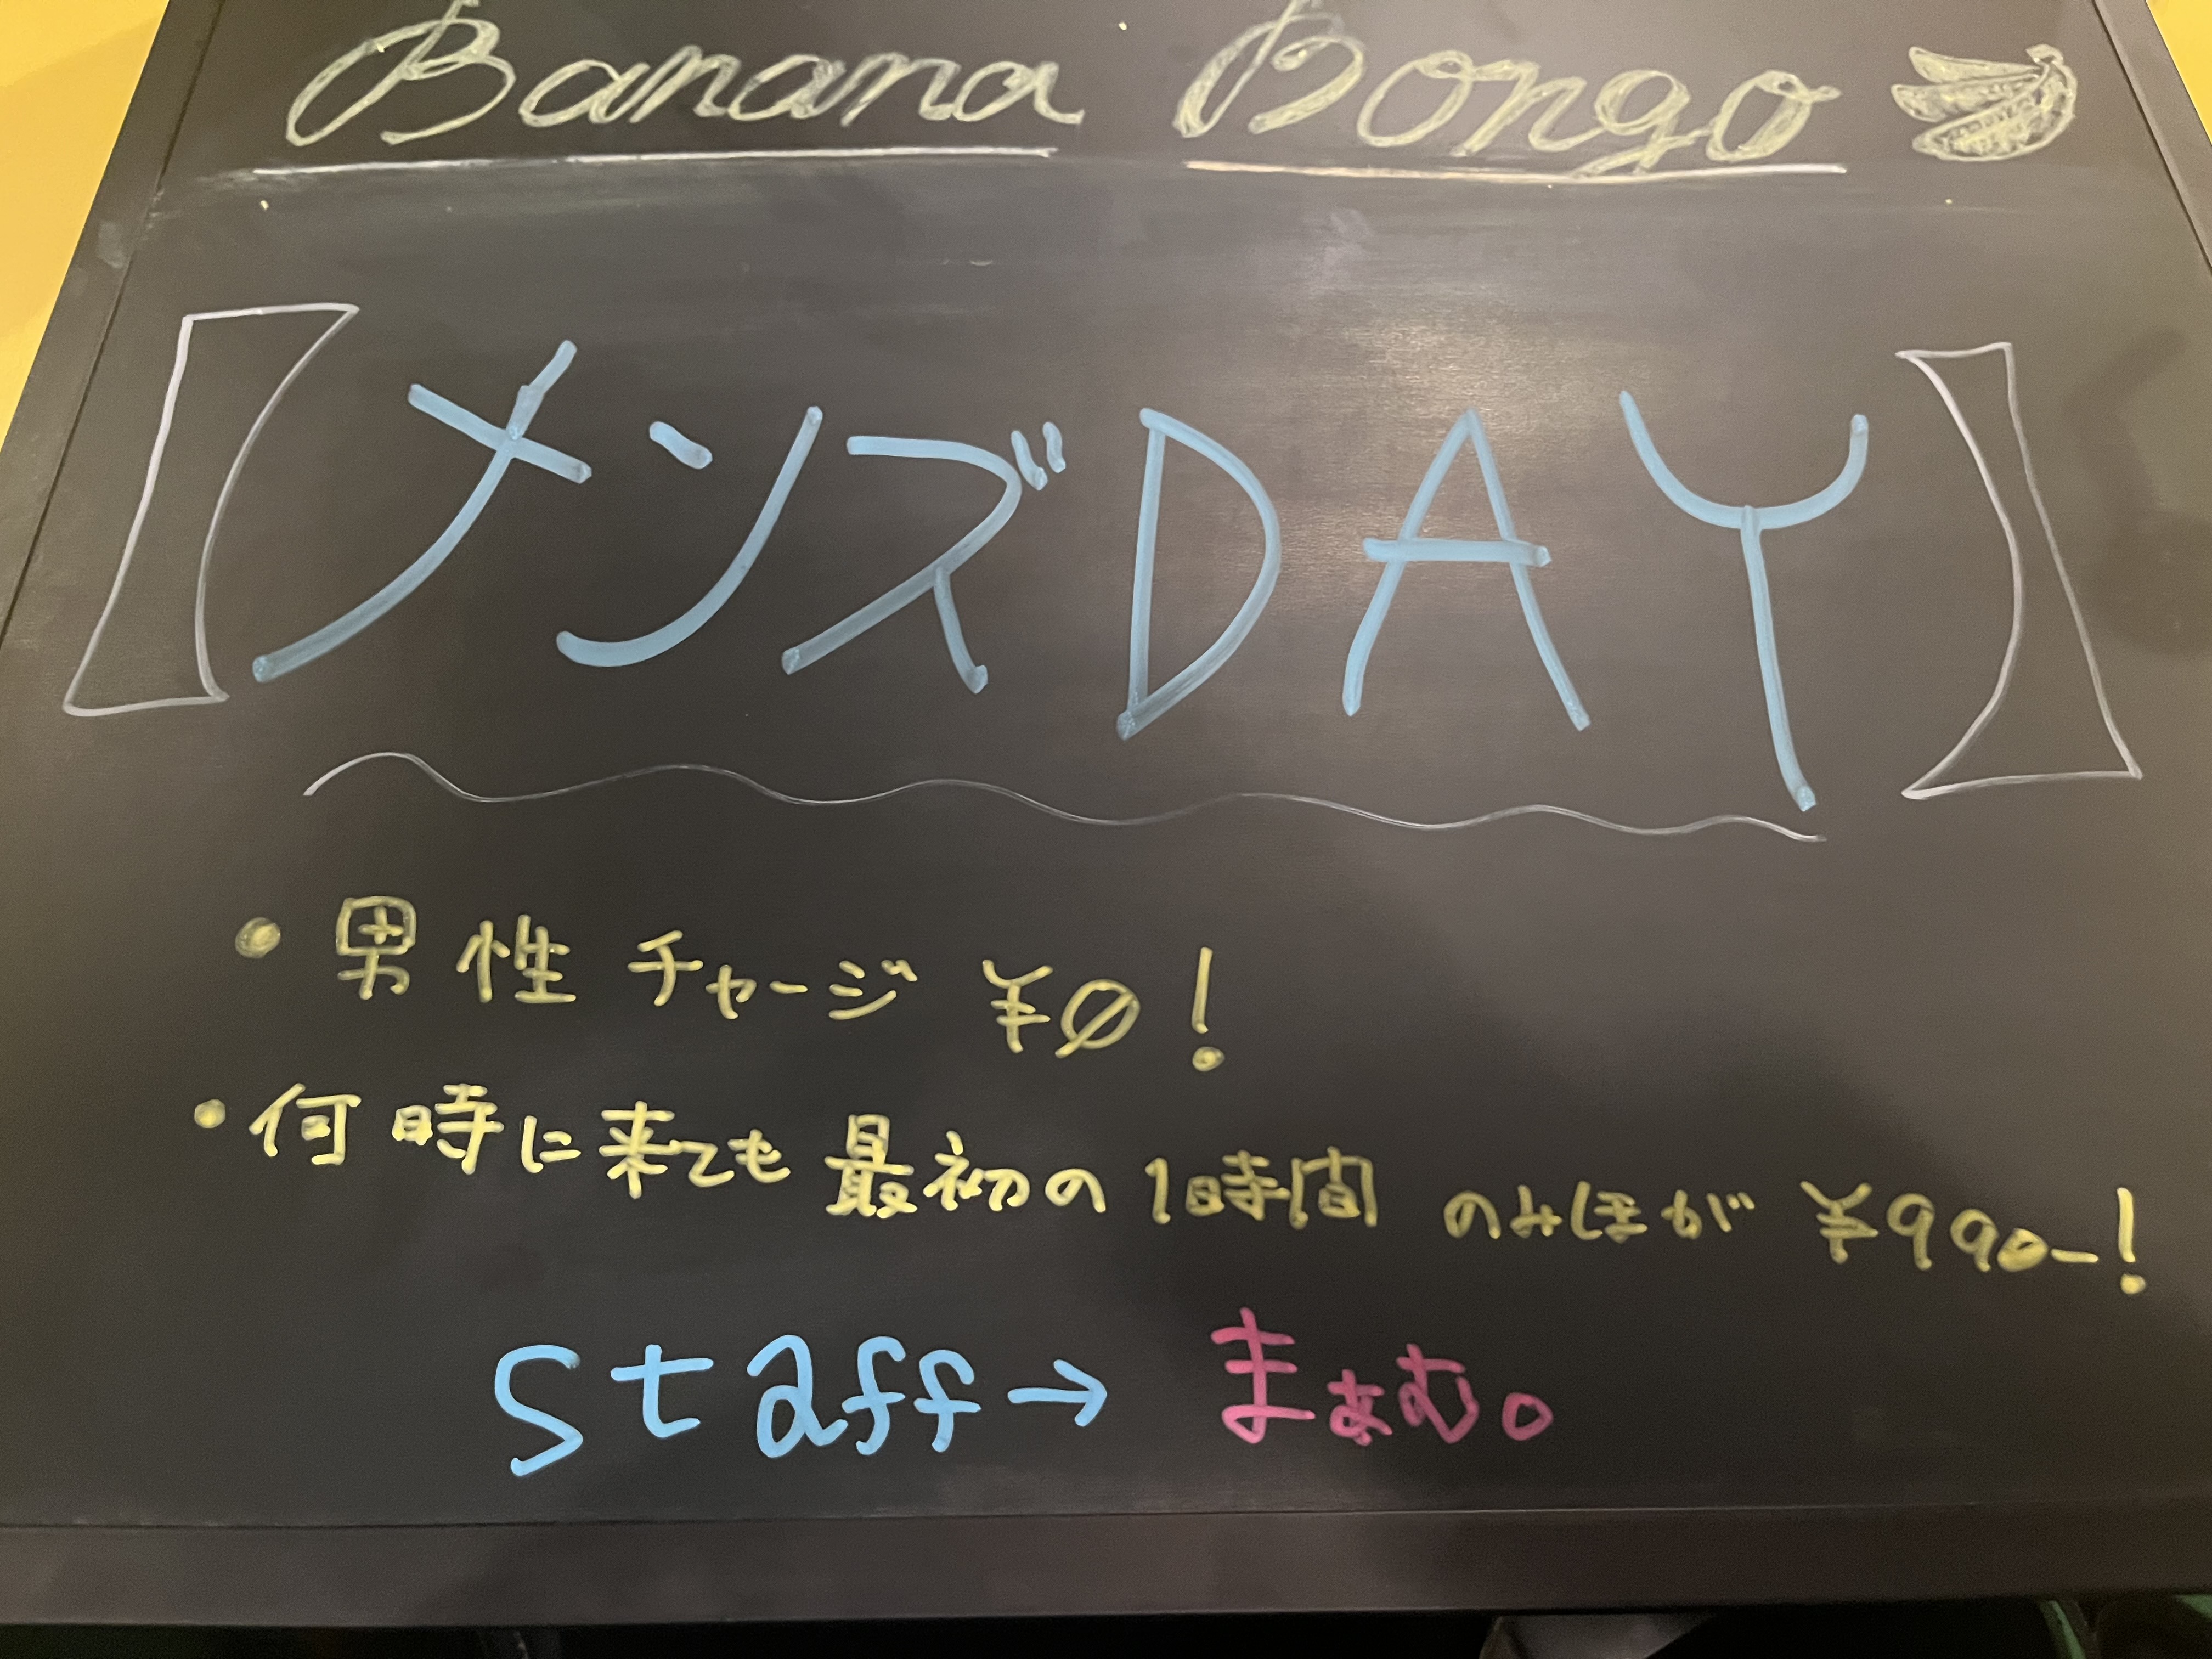 Banana Bongo
【メンズDAY】
・男性チャージ ¥0!
・何時に来ても最初の1時間のみほが ¥990-!
staff→まぁむ。